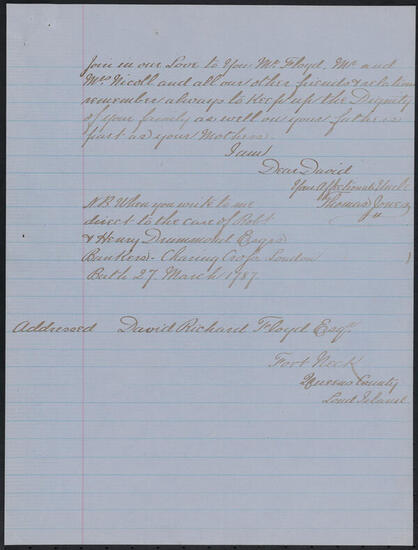 Join in our Love to You Mr. Floyd, Mr. and
Mrs Nicoll and all our other friends & relation
remember always to Keep up the Dignity
of your family as well on your father's
part as your Mothers.
I am
Dear David
Your Affectionate Uncle
Thomas Jones
NB. When you write to me
direct to the care of Robt
& Henry Drummond Esqrs
Bankers - Charing Cross London
Bath 27. March 1787
Addressed David Richard Floyd Esqr.
Fort Neck
Queens County
Loud Island